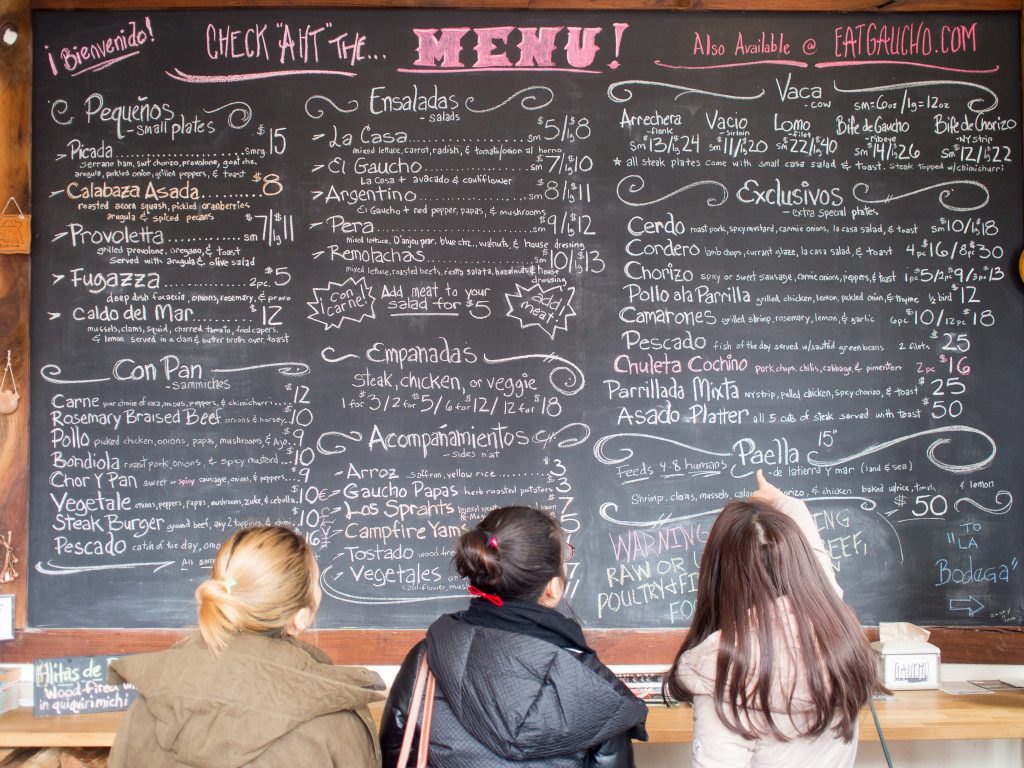 ¡Bienvenido!
CHECK "AHT" THE...
MENU!
ALSO AVAILABLE @ EATGAUCHO.COM
Pequeños
- small plates
Picada Smrg $15
serrano ham, swt chorizo, provolone, goat chz,
arugula, pickled onion, grilled peppers, & toast
Calabaza Asada $8
roasted acorn squash, pickled cranberries
arugula & spiced pecans
Provoletta sm $7/lg $11
grilled provolone, oregano, & toast
Served with arugula & olive salad
Fugazza 2pc. $5
deep dish focaccia, onions, rosemary, & provo
Caldo del Mar $12
mussels, clams, squid, charred tomato, fried capers,
& lemon served in a clam & butter broth over toast
Con Pan
- sammiches
Carne your choice of vaca, onions, peppers, & chimichurri $12
Rosemary Braised Beef onions & horsey. 10
Pollo picked chicken, onions, papas, mushrooms, & Ajo. 9
Bondiola roast pork, onions, & spicy mustard 10
Chor Y Pan sweet or spicy sausage, onion, & peppers 9
Vegetale onions, peppers, papas, mushrooms, zuke, & cebolla 9
Steak Burger ground beef, any 2 toppings & 10
Pescado catch of the day, 10
Ensaladas
- salads
La Casa sm $5/lg $8
mixed lettuce, carrot, radish, & tomato/onion al horno
El Gaucho sm $7/lg $10
La Casa + avocado & cauliflower
Argentino sm $8/lg $11
El Gaucho + red pepper, papas, & mushrooms
Pera sm $9/lg $12
mixed lettuce, D'anjou pear, blue chz., walnuts, & house dressing
Remolachas sm $10/lg $13
mixed lettuce, roasted beets, ricotta salata, hazelnuts & house
dressing
con carne!
Add meat to your
salad for $5
add meat!
Empanadas
Steak, chicken, or veggie
1 for $3/2 for $5/6 for $12/12 for $18
Acompañamientos
- sides n'at
Arroz saffron, yellow rice $3
Gaucho Papas herb roasted potatoes 3
Los Sprahts 7
Campfire Yams 5
Tostado wood fire
Vegetales cauliflower, 7
Vaca
- cow
sm=6oz/lg=12oz
Arrechera
- flank
sm $13/lg $24
Vacio
- sirloin
sm $11/lg $20
Lomo
- filet
sm $22/lg $40
Bife de Gaucho
- ribeye
sm $14/lg $26
Bife de Chorizo
- NY strip
sm $12/lg $22
* all steak plates come with small casa salad & toast. Steak topped w/chimichurri
Exclusivos
- extra special plates
Cerdo roast pork, spicy mustard, carmie onions, la casa salad, & toast sm $10/lg $18
Cordero lamb chops, currant glaze, la casa salad, & toast 4pc $16/8pc $30
Chorizo spicy or sweet sausage, carmie onions, peppers, & toast 1pc $5/2pc $9/3pc $13
Pollo ala Parrilla grilled chicken, lemon, pickled onion, & thyme ½ bird $12
Camarones grilled shrimp, rosemary, lemon, & garlic 6pc $10/12pc $18
Pescado fish of the day served w/sautéd green beans 2 filets $25
Chuleta Cochino pork chops, chilis, cabbage, & pimenton 2 pc $16
Parrillada Mixta NY strip, pulled chicken, spicy chorizo, & toast $25
Asado Platter all 5 cuts of steak served with toast $50
Feeds 4-8 humans
Paella 15"
- de la tierra y mar (land & sea)
Shrimp, clams, mussels, & chicken baked w/rice, & lemon
$50
WARNING
RAW OR BEEF,
POULTRY & FI
TO
"LA
Bodega"
Wood-fired
in quiquirimichi
GAUCHO